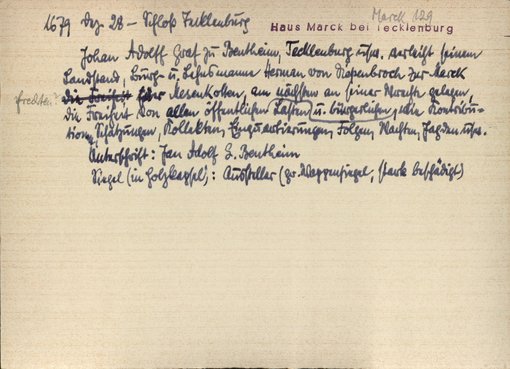 Marck 129
1679 Dez 28 – Schloß Tecklenburg
Haus Marck bei Tecklenburg
Johan Adolff Graf zu Bentheim, Tecklenburg usw. verleiht seinem
Landsaß, Burg- u. Lehnsmanne Herman von Diepenbroch zur Marck
die Freiheit für Mesenkotten, am nächsten an seiner gelegen,
die Freiheit von allen öffentlichen Lasten u. bürgerlichen, wie Kontribu-
tion, Schatzungen, Kollekten, Einquartierungen, Folgen, Wachten, Jagden usw.
Unterschrift: Jan Adolf G. Bentheim
Siegel (in Holzkapsel): Aussteller (gr. Wappensiegel, stark beschädigt)